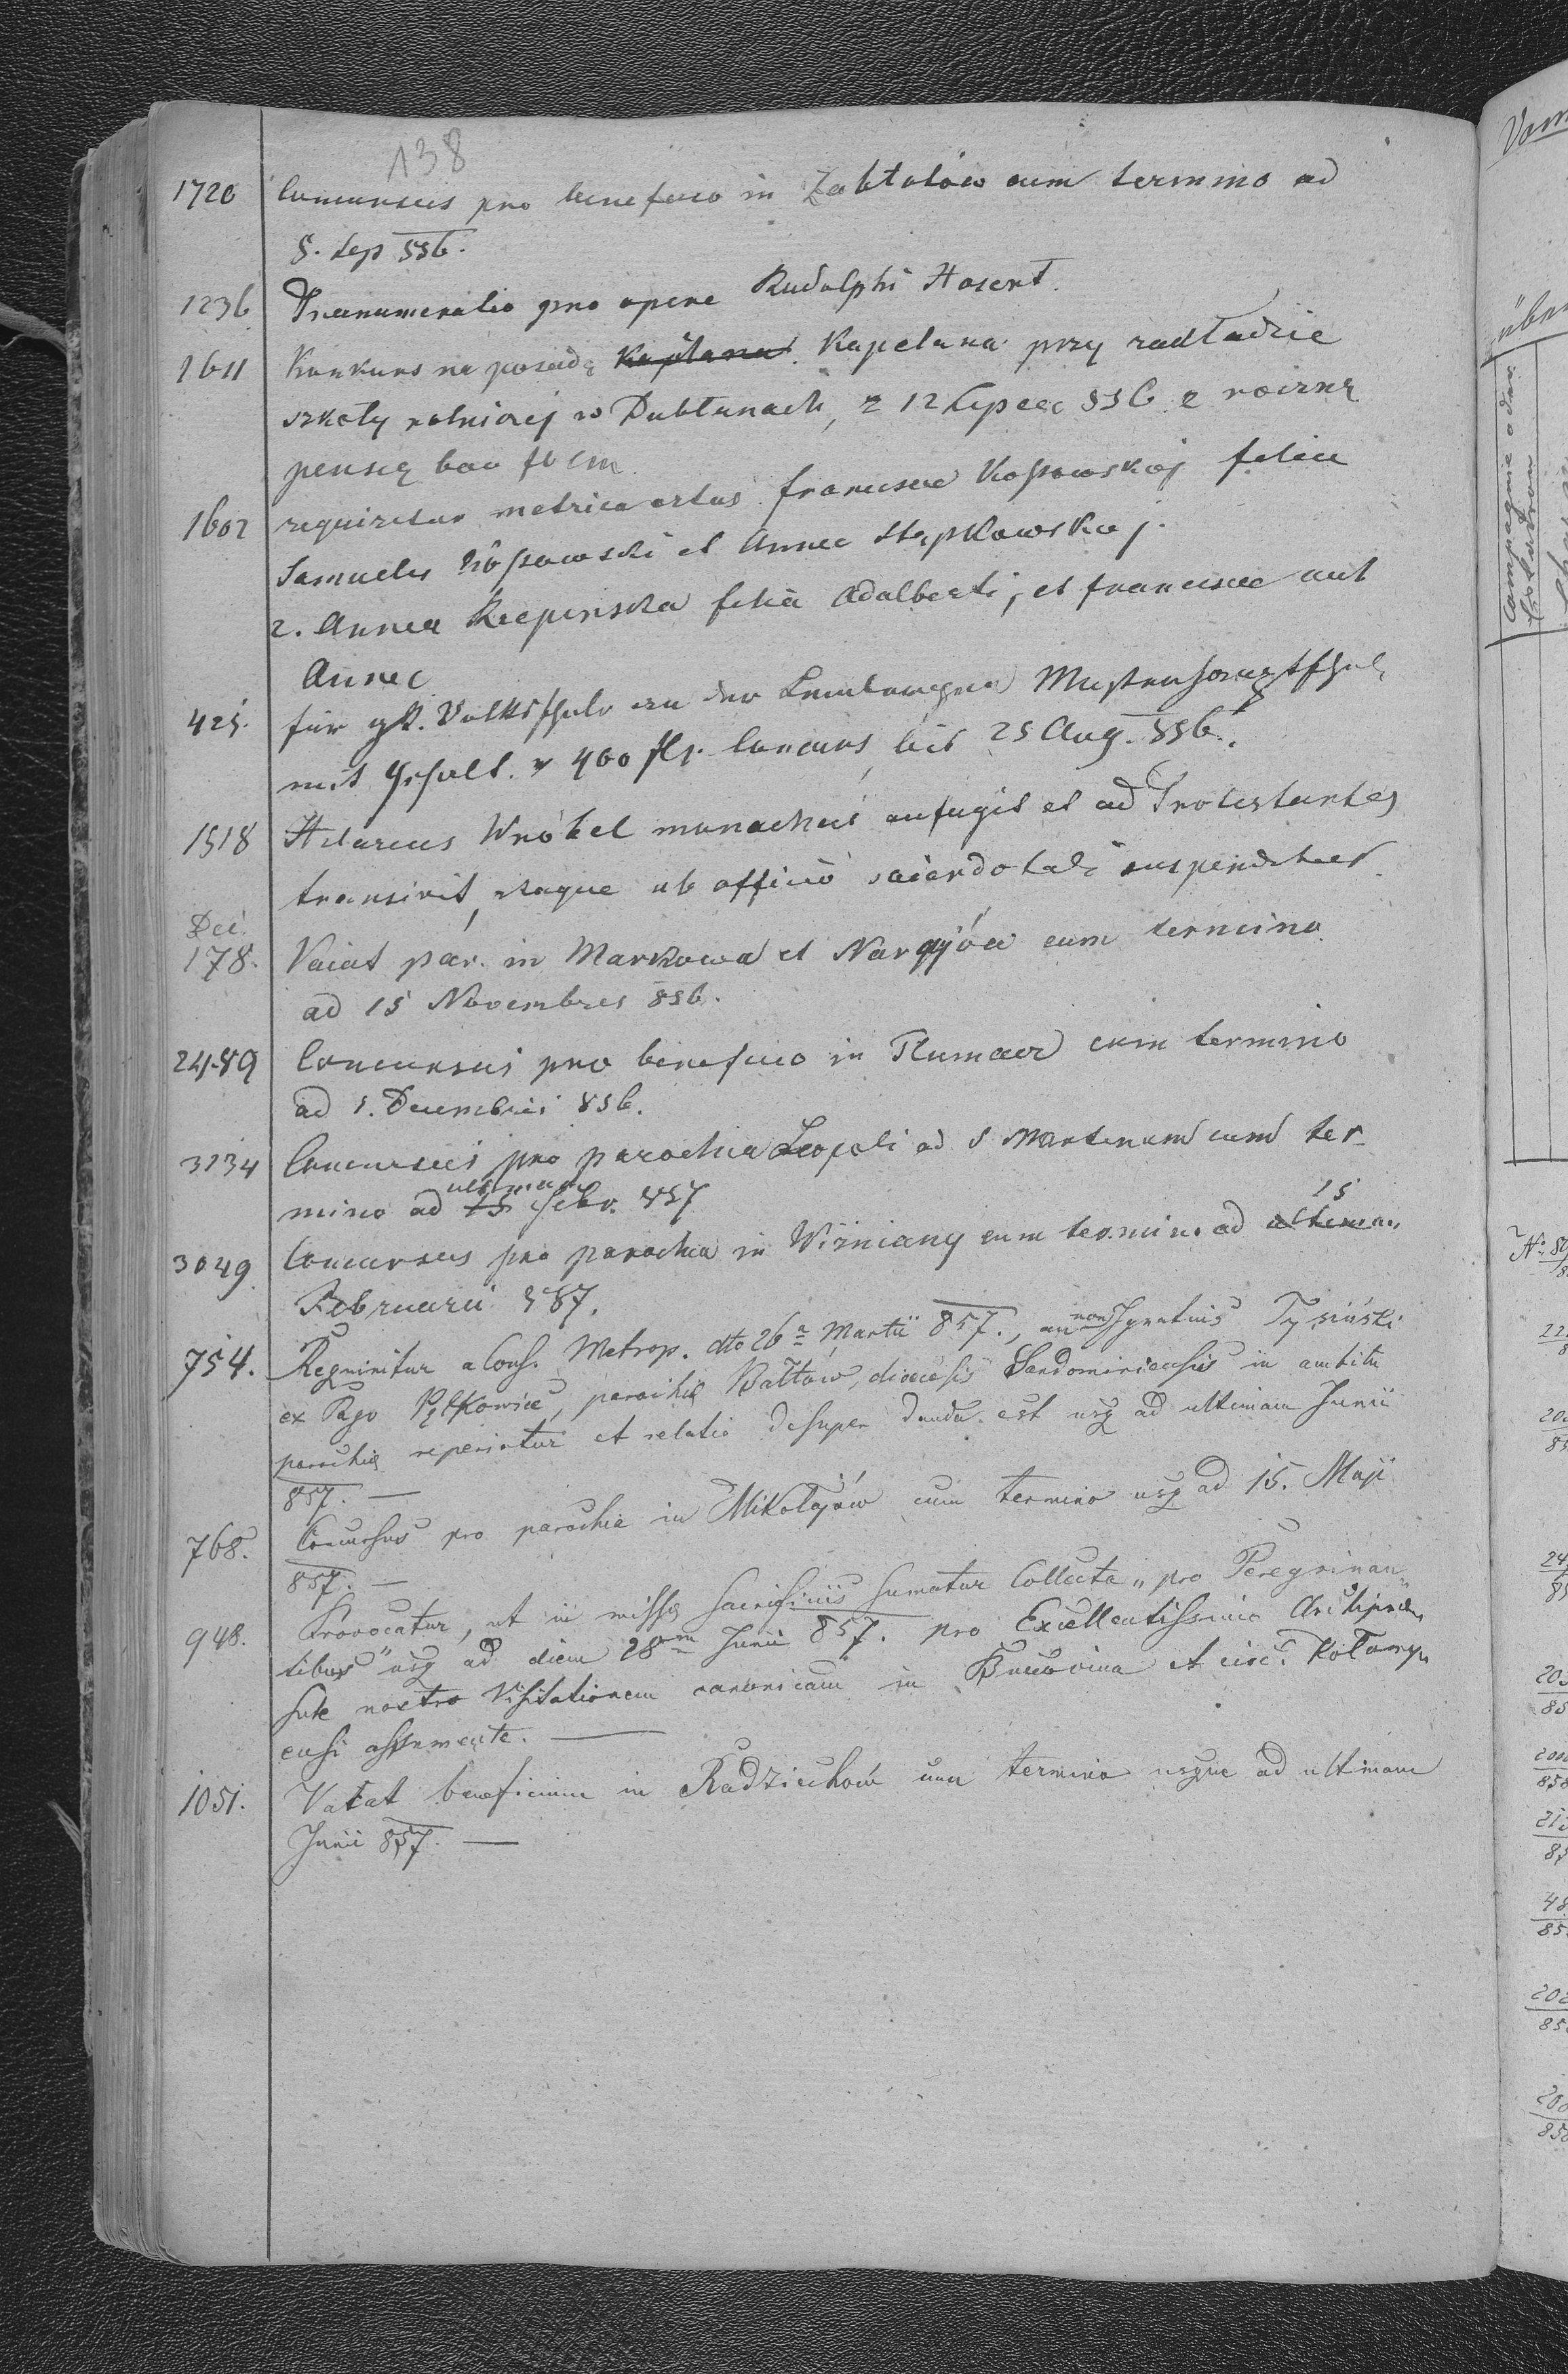 138
1720 Concursus pro beneficio in Zabłotów cum termino ad
5. Sep 856.
1236 Praenumeratio pro opere Rudolphi Hosert.
1611 Konkurs na posadę Kapłana Kapelana przy zakładzie
szkoły rolniczej w Dublanach, z 12 Lipcec 856 z roczną
pensyą 600 fl CM.
1602 requiretur metrica ortus Franciscae Kossowskiej filiae
Samuelis Kossowski et Annae Stępkowskiej.
2. Anna Rzepinska filia Adalberti, et Franciscae aut
Annae
425. für gk. Volksschule an der Lemberger Musterhauptschul
mit Gehalt. v 400 flr. Concurs bis 25 Aug. 856.
1518 Hilarius Wróbel monachus aufugit et ad Protestantes
transivit, itaque ab officio sacerdotali suspenditur
Dec.
178. Vacat par. in Markowa et Narajów cum termino
ad 15 Novembris 856.
2489 Concursus pro beneficio in Tłumacz cum termino
ad 1. Decembris 856.
3134 Concursus pro parochia Leopoli ad S Martinum cum ter-
mino ad 15 ultimam Febr. 857
3049. Concursus pro parochia in Wiżniany cum termino ad ultimam 15
Februarii 857.
754. Requiritur a Cons. Metrop. dto 26a Martii 857., an non Ignatius Tysiński
ex Pago Pętkowice, parochiæ Bałtów, dioecesis Sandomiriensis in ambitu
parochiæ reperiatur et relatio desuper danda est usq ad ultimam Junii
857. —
768. Concursus pro parochia in Mikołajów cum termino usq ad 15. Maji
857. —
948. Provocatur, ut in missæ Sacrificiis sumatur Collecta "pro Peregrinan-
tibus" usq ad diem 28vam Junii 857. pro Excellentissimo Archipræ-
sule nostro Visitationem canonicam in Bucovina et circ. Kołomy-
ensi assumente. —
1051. Vacat beneficium in Radziechów cum termino usque ad ultimam
Junii 857. —